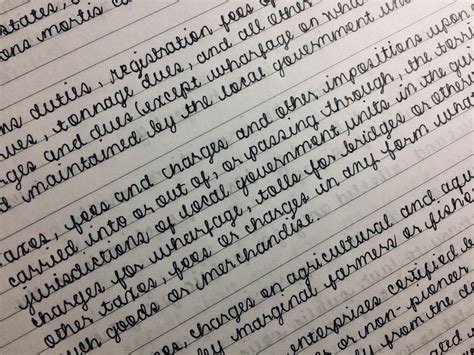 states,
ons mortis ca
ms duties, registration fees of
ues, tonnage dues, and all other
ges and dues (except wharfage on wha
d maintained by the local government un
axes, fees and charges and other impositions upon
carried into or out of, or passing through, the terri
jurisdictions of local government units in the gui
charges for wharfage, tolls for bridges or othe
other taxes, fees or charges in any form wha
uch goods or merchandise
es, charges on agricultural and aqu
by marginal farmers or fishe
enterprises certified
s or non-pioneer
ly from the da